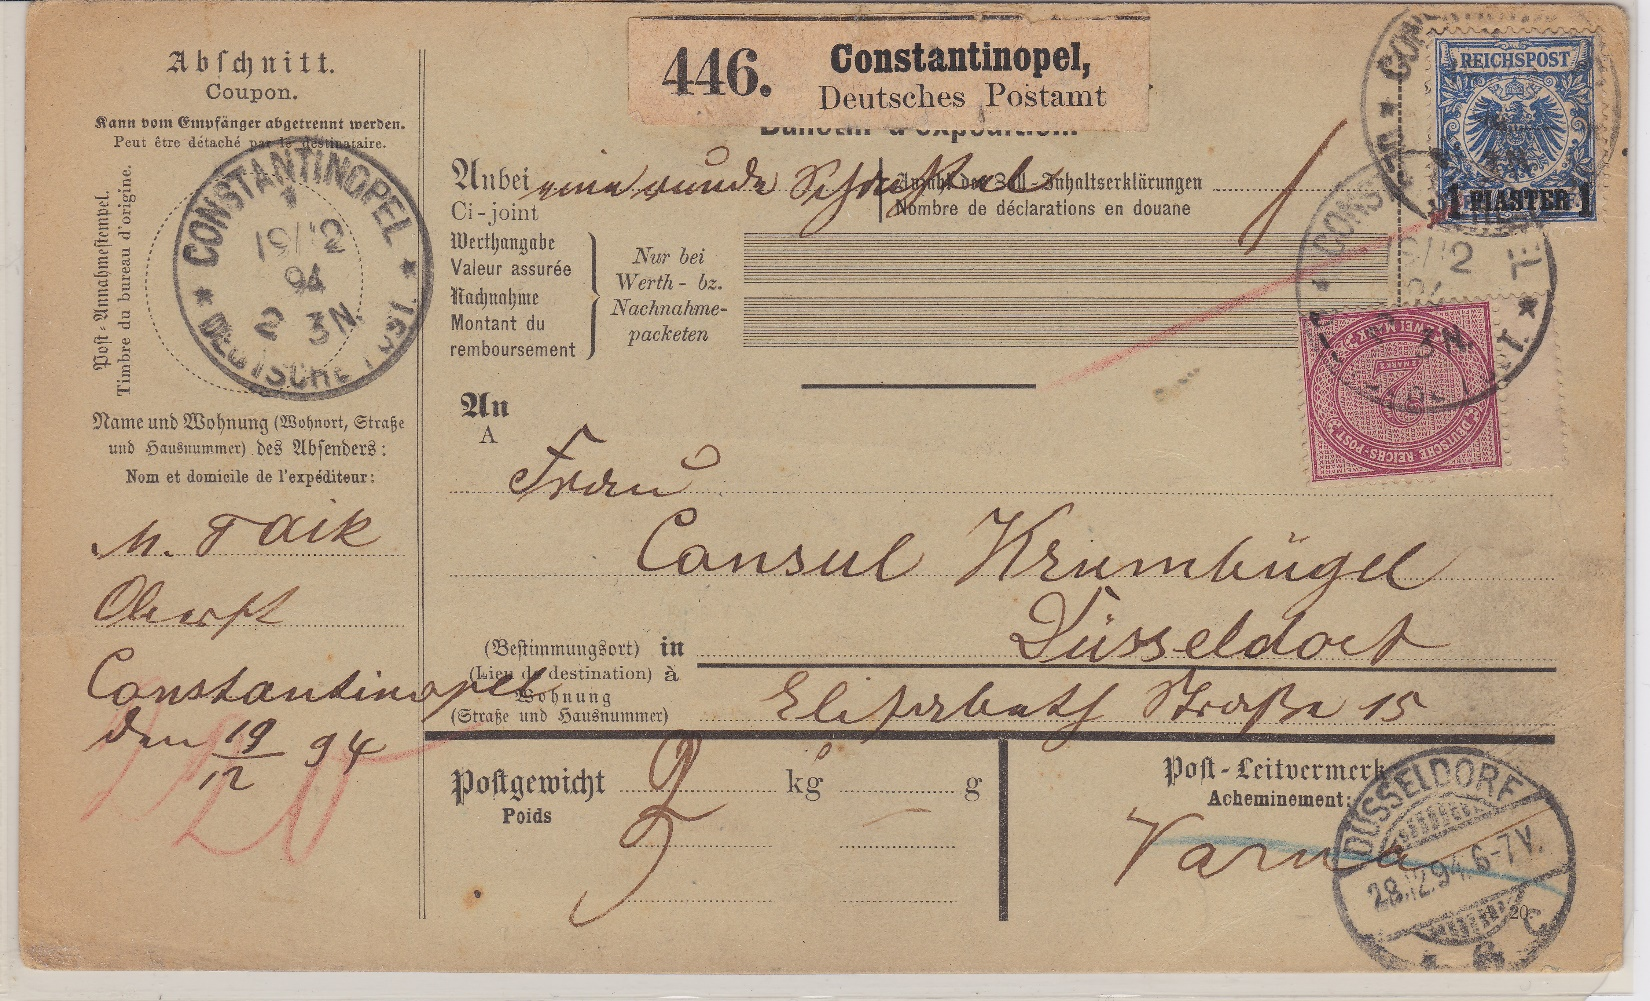 446.
Constantinopel,
Deutsches Postamt
REICHSPOST
1 PIASTER 1
Abschnitt.
Coupon.
Kann vom Empfänger abgetrennt werden.
Peut être détaché par le destinataire.
Post-Annahmestempel.
Timbre du bureau d'origine.
CONSTANTINOPEL
19/12
94
2 3N.
DEUTSCHE POST
Name und Wohnung (Wohnort, Straße
und Hausnummer) des Absenders:
Nom et domicile de l'expéditeur:
M. Faik
Oberst
Constantinopel
den 19/12 94
Bulletin d'expédition.
Anbei eine runde Schachtel
Ci-joint
Anzahl der Zoll-Inhaltserklärungen 1
Nombre de déclarations en douane
Werthangabe
Valeur assurée
Nachnahme
Montant du
remboursement
Nur bei
Werth- bz.
Nachnahme-
packeten
CONST
19/12
94
3N.
ZWEI MARK
2
DEUTSCHE REICHS-POST
An
A
Frau
Consul Krumbügel
(Bestimmungsort) in Düsseldorf
(Lieu de destination) à
Wohnung
(Straße und Hausnummer) Elisabeth Straße 15
Postgewicht kg g
Poids
Post-Leitvermerk
Acheminement:
Varna
DÜSSELDORF
28.12.94.6-7V.
C
20